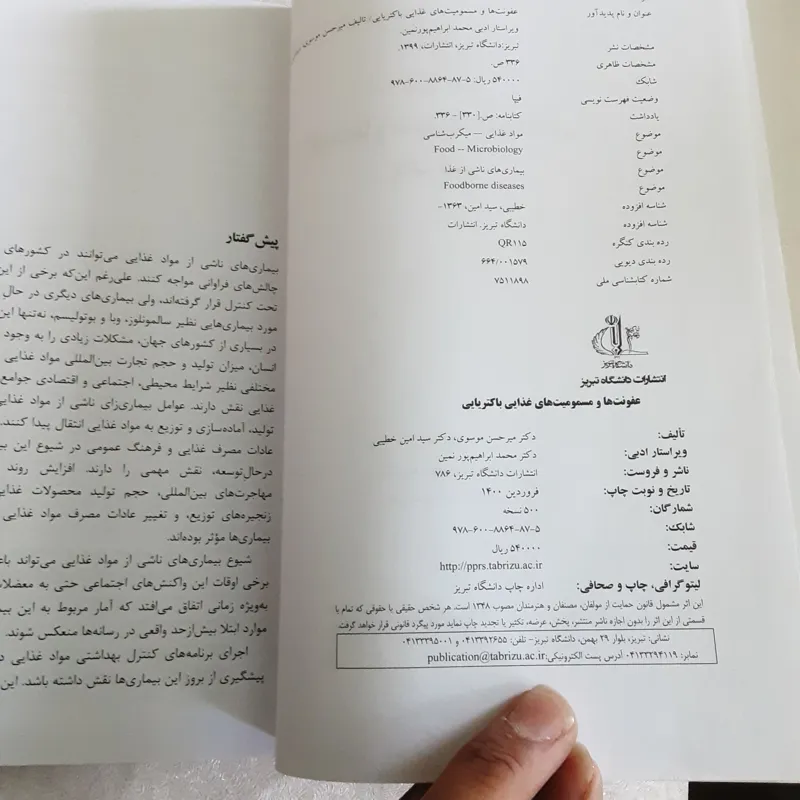 عنوان و نام پدید آور عفونت‌ها و مسمومیت‌های غذایی باکتریایی/ تالیف میرحسن موسوی،
ویراستار ادبی محمد ابراهیم‌پور‌نمین.
مشخصات نشر تبریز:دانشگاه تبریز، انتشارات، ۱۳۹۹.
مشخصات ظاهری ۳۳۶ ص.
شابک ۵۴۰۰۰۰ ریال: ۵-۸۷-۸۸۶۴-۶۰۰-۹۷۸
وضعیت فهرست نویسی فیپا
یادداشت کتابنامه: ص.[۳۳۰] - ۳۳۶.
موضوع مواد غذایی — میکرب‌شناسی
موضوع Food -- Microbiology
موضوع بیماری‌های ناشی از غذا
موضوع Foodborne diseases
شناسه افزوده خطیبی، سید امین، ۱۳۶۳-
شناسه افزوده دانشگاه تبریز. انتشارات
رده بندی کنگره QR۱۱۵
رده بندی دیویی ۶۶۴/۰۰۱۵۷۹
شماره کتابشناسی ملی ۷۵۱۱۸۹۸
دانشگاه تبریز
انتشارات دانشگاه تبریز
عفونت‌ها و مسمومیت‌های غذایی باکتریایی
تألیف: دکتر میرحسن موسوی، دکتر سید امین خطیبی
ویراستار ادبی: دکتر محمد ابراهیم‌پور نمین
ناشر و فروست: انتشارات دانشگاه تبریز، ۷۸۶
تاریخ و نوبت چاپ: فروردین ۱۴۰۰
شمارگان: ۵۰۰ نسخه
شابک: ۵-۸۷-۸۸۶۴-۶۰۰-۹۷۸
قیمت: ۵۴۰۰۰۰ ریال
سایت: http://pprs.tabrizu.ac.ir
لیتوگرافی، چاپ و صحافی: اداره چاپ دانشگاه تبریز
این اثر مشمول قانون حمایت از مولفان، مصنفان و هنرمندان مصوب ۱۳۴۸ است. هر شخص حقیقی یا حقوقی که تمام یا
قسمتی از این اثر را بدون اجازه ناشر منتشر، پخش، عرضه، تکثیر یا تجدید چاپ نماید مورد پیگرد قانونی قرار خواهد گرفت.
نشانی: تبریز، بلوار ۲۹ بهمن، دانشگاه تبریز- تلفن: ۰۴۱۳۳۹۲۶۵۵ و ۰۴۱۳۳۳۹۵۰۰۱
نمابر: ۰۴۱۳۳۲۹۴۱۱۹ آدرس پست الکترونیکی:publication@tabrizu.ac.ir
پیش گفتار
بیماری‌های ناشی از مواد غذایی می‌توانند در کشورهای
چالش‌های فراوانی مواجه کنند. علی‌رغم این‌که برخی از این
تحت کنترل قرار گرفته‌اند، ولی بیماری‌های دیگری در حال
مورد بیماری‌هایی نظیر سالمونلوز، وبا و بوتولیسم، نه‌تنها این
در بسیاری از کشورهای جهان، مشکلات زیادی را به وجود
انسان، میزان تولید و حجم تجارت بین‌المللی مواد غذایی
مختلفی نظیر شرایط محیطی، اجتماعی و اقتصادی جوامع
غذایی نقش دارند. عوامل بیماری‌زای ناشی از مواد غذایی
تولید، آماده‌سازی و توزیع به مواد غذایی انتقال پیدا کنند.
عادات مصرف غذایی و فرهنگ عمومی در شیوع این
درحال‌توسعه، نقش مهمی را دارند. افزایش روند
مهاجرت‌های بین‌المللی، حجم تولید محصولات
زنجیره‌های توزیع، و تغییر عادات مصرف مواد غذایی
بیماری‌ها مؤثر بوده‌اند.
شیوع بیماری‌های ناشی از مواد غذایی می‌تواند
برخی اوقات این واکنش‌های اجتماعی حتی به
به‌ویژه زمانی اتفاق می‌افتد که آمار مربوط به این
موارد ابتلا بیش‌ازحد واقعی در رسانه‌ها منعکس شوند.
اجرای برنامه‌های کنترل بهداشتی مواد غذایی
پیشگیری از بروز این بیماری‌ها نقش داشته باشد. این